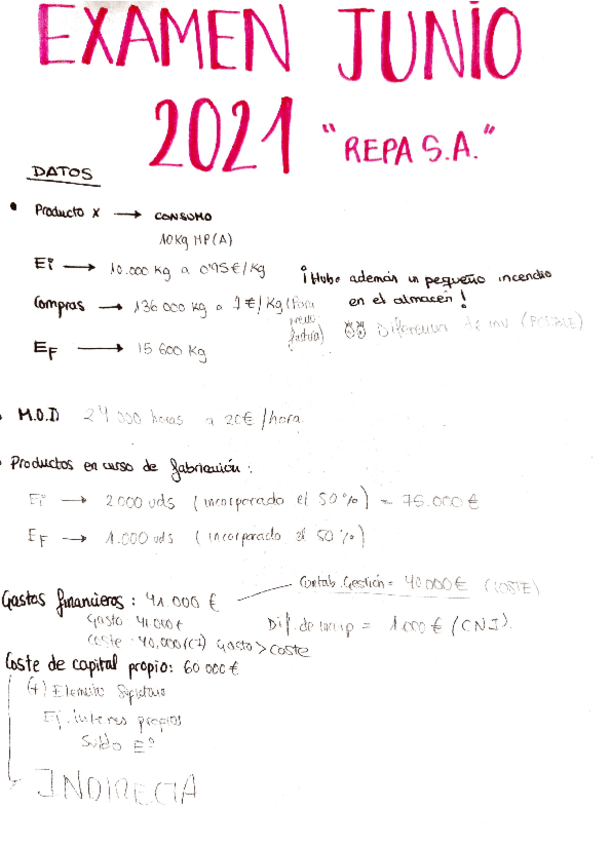 EXAMEN JUNIO
2021 "REPA S.A."
DATOS
• Producto X → CONSUMO
10Kg MP(A)
Ei → 10.000 Kg a 0'95€/Kg
¡Hubo además un pequeño incendio
en el almacén!
Compras → 136 000 Kg a 1€/Kg (Para
precio
factura)
Diferencia de inv (POSIBLE)
EF → 15 600 Kg
M.O.D 24 000 horas a 20€/hora
Productos en curso de fabricación:
Ei → 2000 uds (incorporado el 50%) = 75.000€
EF → 1.000 uds (incorporado el 50%)
Gastos financieros: 41 000 €
Contab. Gestión = 40 000€ (COSTE)
Gasto 41.000€
Dif. de incorp = 1.000€ (CNI).
Coste 40,000(CI) Gasto>Coste
Coste de capital propio: 60 000€
(+) Elemento Supletorio
Ej. interes propios
Sueldo Eº
INDIRECTA